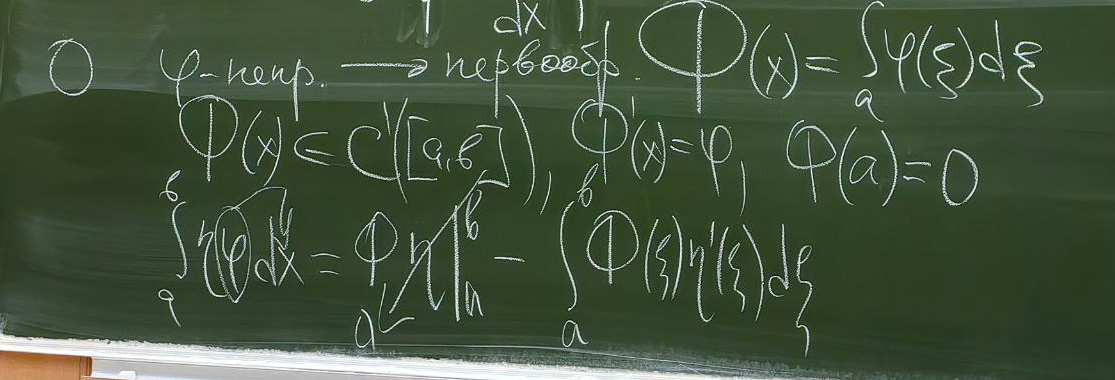 dx
О φ-непр. → первообр. Φ(x) = ∫ₐ φ(ξ)dξ
Φ(x) ∈ C'([a,b]), Φ'(x) = φ, Φ(a) = 0
∫ₐᵇ ηφdx = Φη|ₐᵇ - ∫ₐᵇ Φ(ξ)η'(ξ)dξ